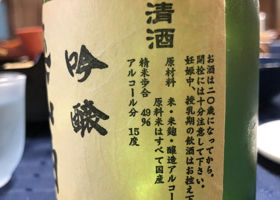 清酒
吟醸
お酒は二〇歳になってから。
開栓には十分注意して下さい。
妊娠中、授乳期の飲酒はお控え下
原材料 米・米麹・醸造アルコー
原料米はすべて国産
精米歩合 49%
アルコール分 15度